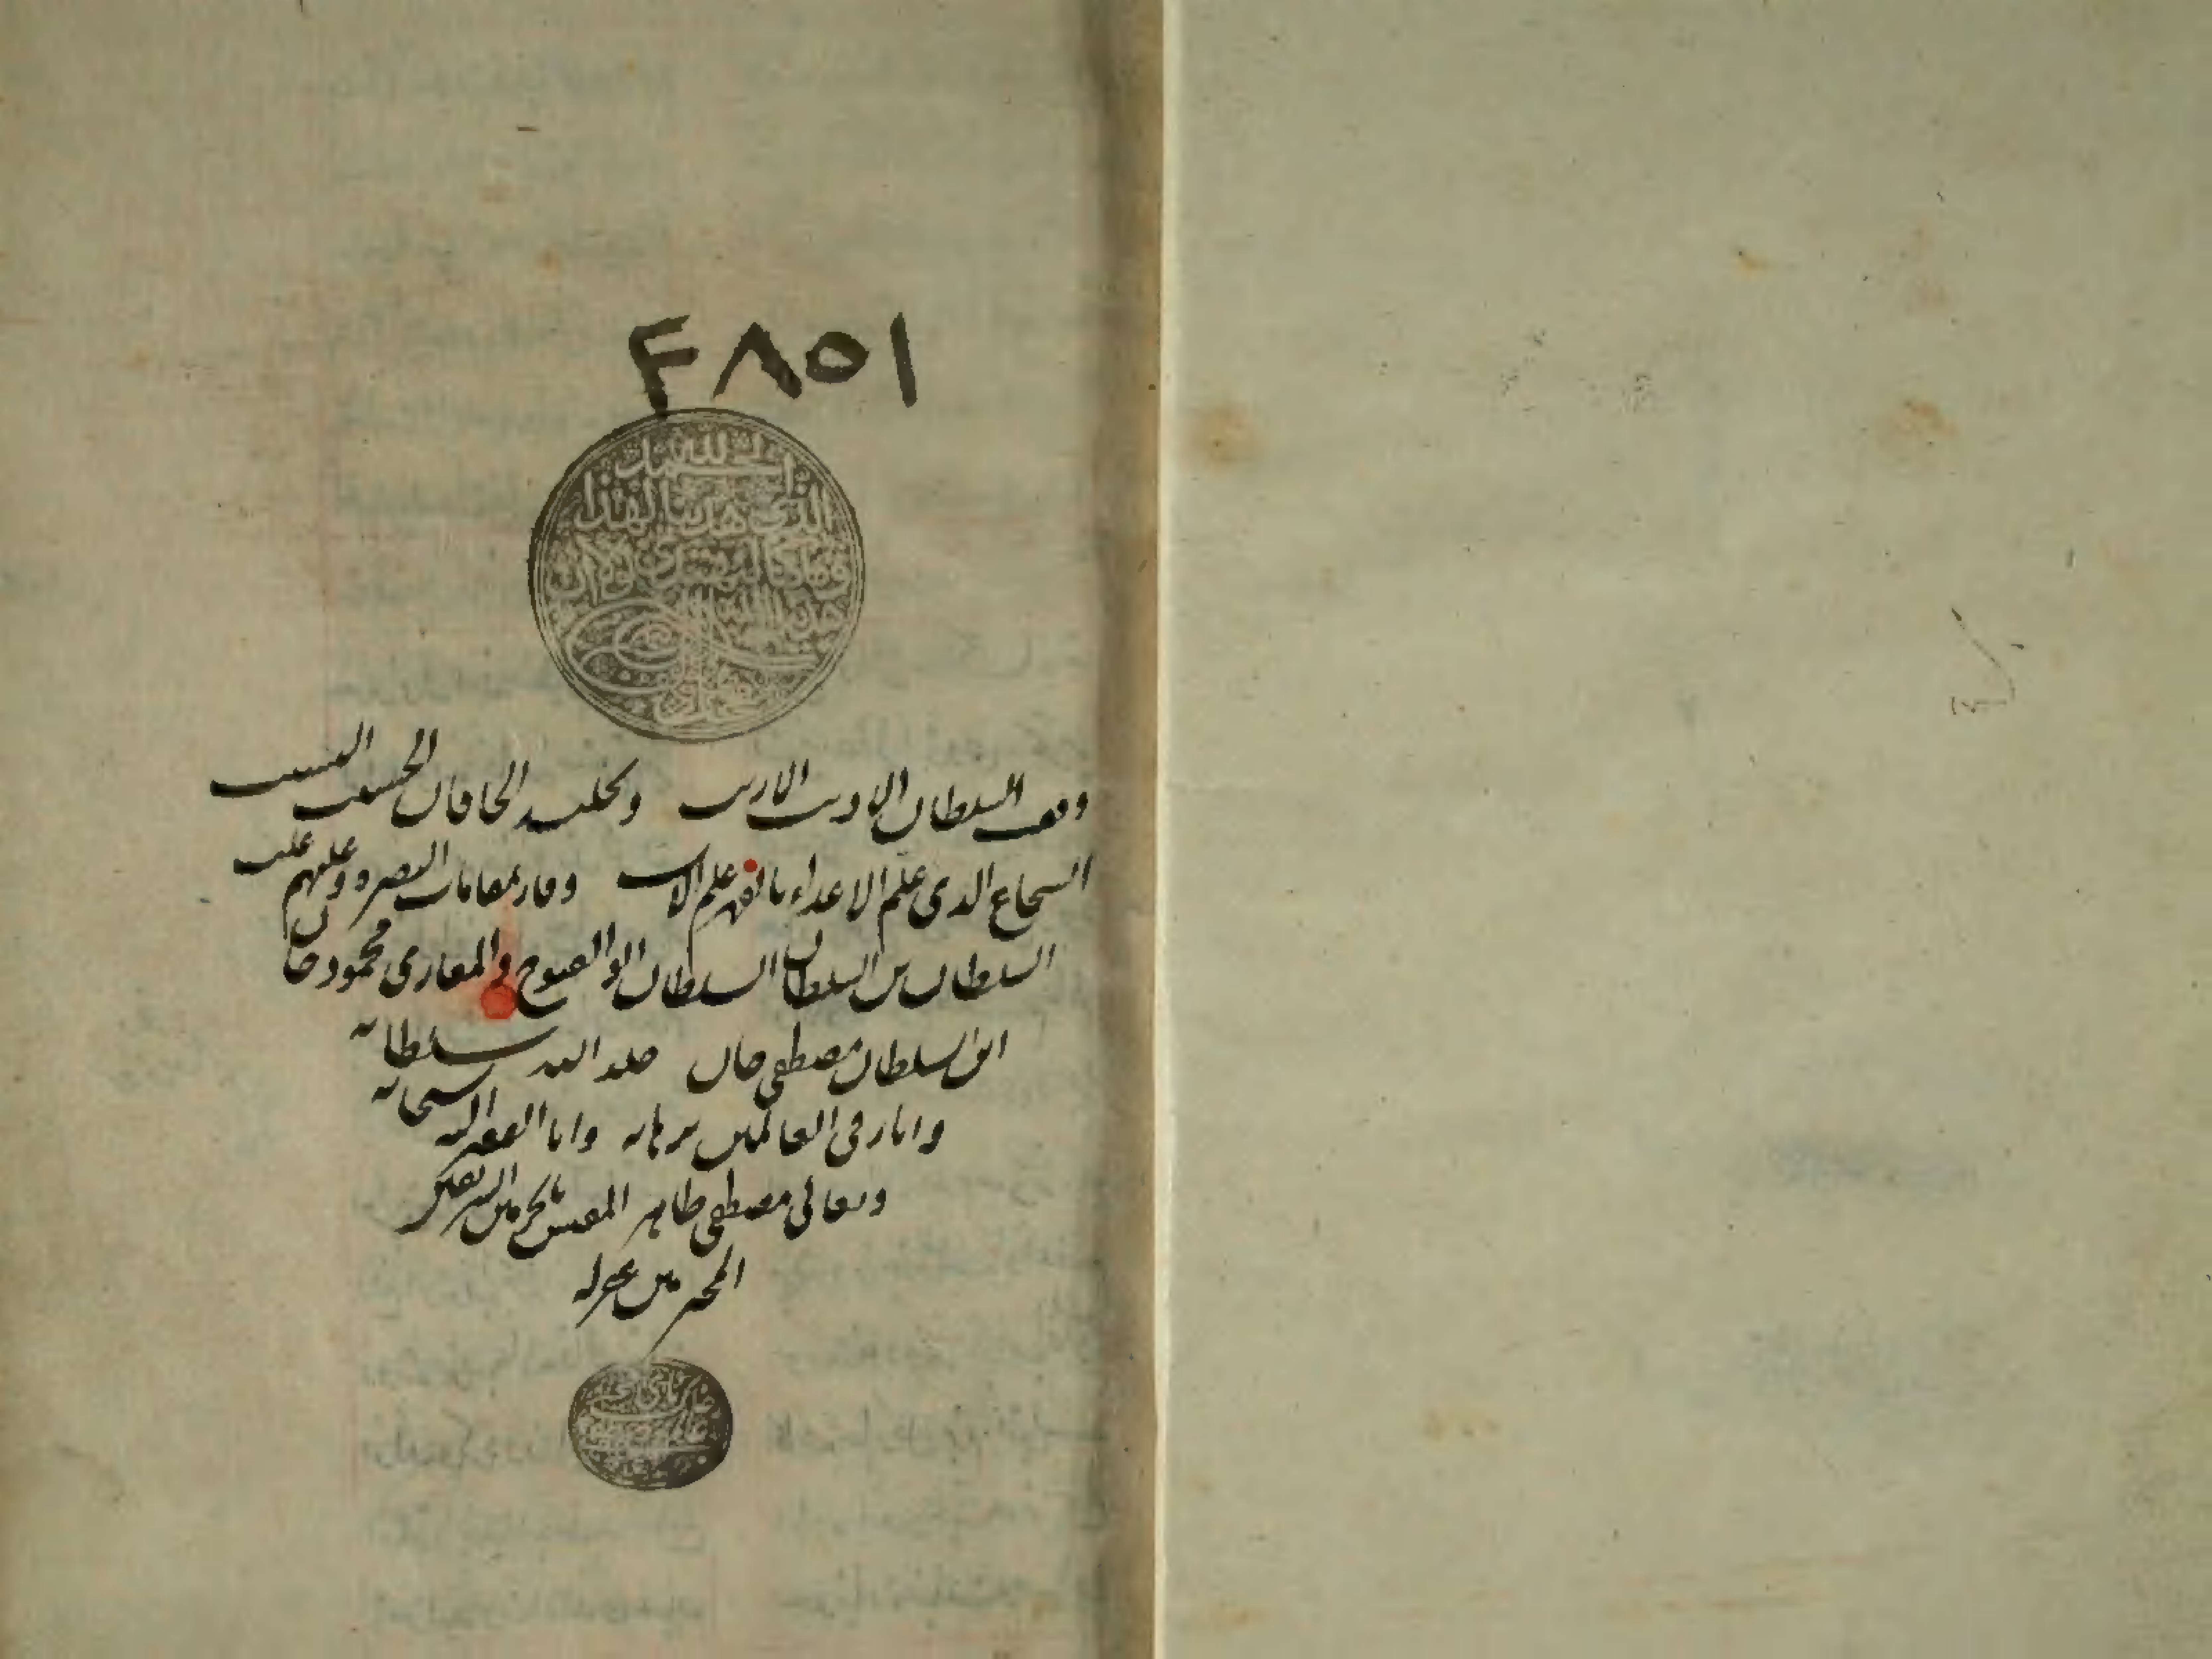 ٤٨٥١
الحمد لله
الذي هدينا لهذا
وما كنا لنهتدي لولا ان
هدينا الله
وقف السلطان الاديب الاريب وكلب الخاقان الحسيب النسيب
الشجاع الذى علم الاعداء بالقهر علم الادب وفاز بمقامات النصرة وعليهم غلب
السلطان بن السلطان السلطان ابو الفتوح والمغازى محمود خان
ابن السلطان مصطفى خان خلد الله سلطانه
وانار فى العالمين برهانه وانا الفقير اليه سبحانه
وتعالى مصطفى طاهر المفتش بالحرمين الشريفين
المحترمين غفر له